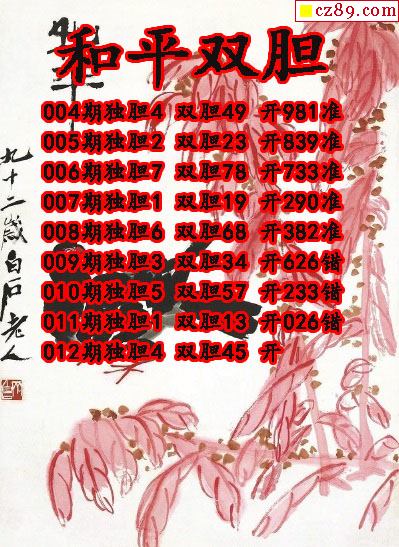 cz89.com
和平双胆
004期独胆4 双胆49 开981准
005期独胆2 双胆23 开839准
006期独胆7 双胆78 开733准
007期独胆1 双胆19 开290准
008期独胆6 双胆68 开382准
009期独胆3 双胆34 开626错
010期独胆5 双胆57 开233错
011期独胆1 双胆13 开026错
012期独胆4 双胆45 开
九十二岁白石老人